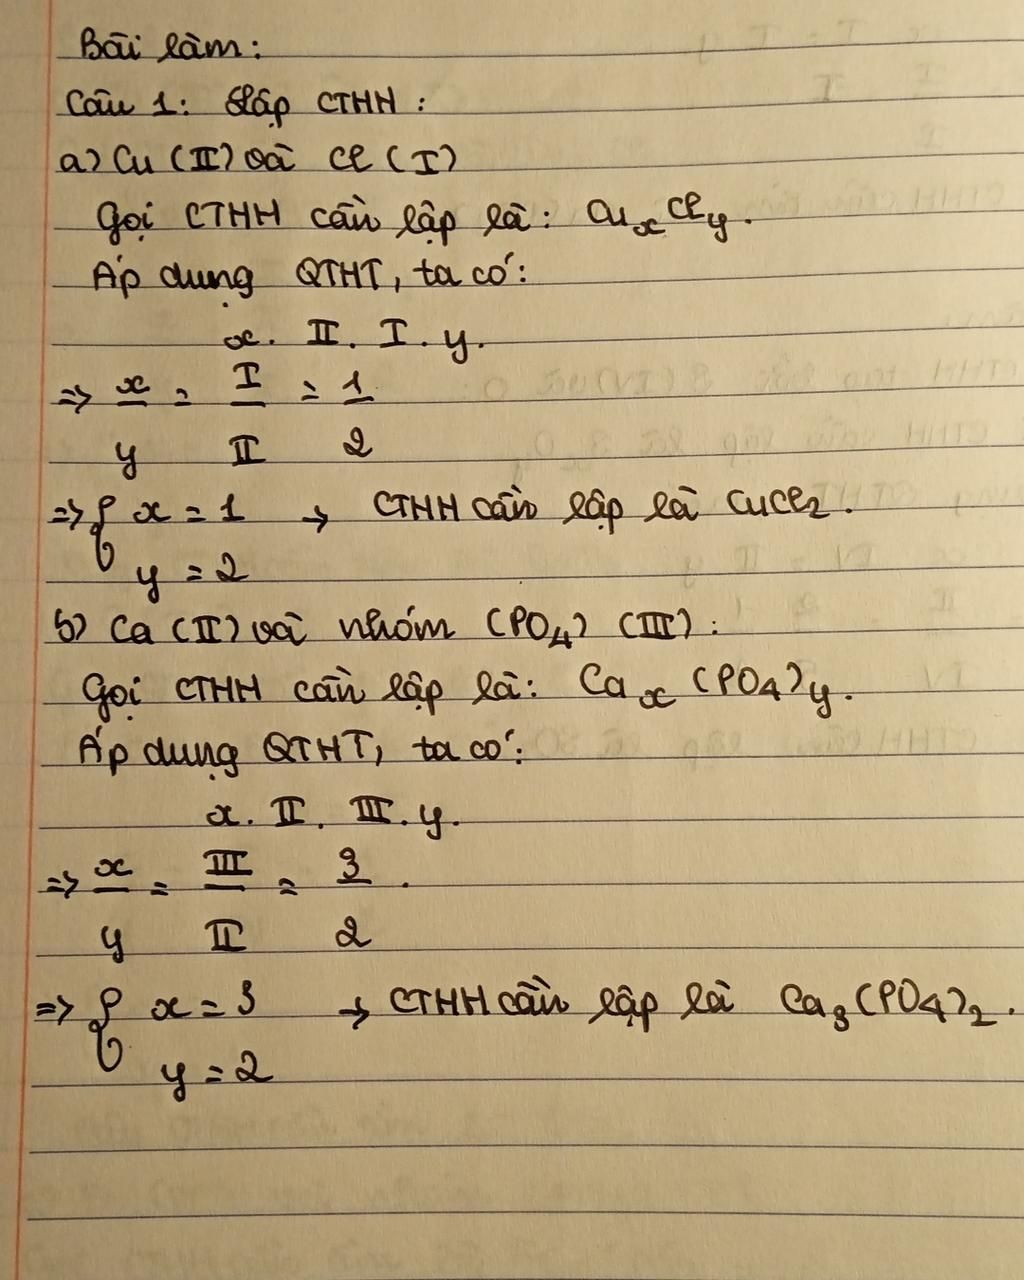 Bài làm:
Câu 1: Lập CTHH:
a) Cu (II) và Cl (I)
Gọi CTHH cần lập là: CuxCly.
Áp dụng QTHT, ta có:
x. II. I. y.
=> x/y = I/II = 1/2
=> { x = 1 → CTHH cần lập là CuCl2.
y = 2
b) Ca (II) và nhóm (PO4) (III):
Gọi CTHH cần lập là: Cax(PO4)y.
Áp dụng QTHT, ta có:
x. II. III. y.
=> x/y = III/II = 3/2.
=> { x = 3 → CTHH cần lập là Ca3(PO4)2.
y = 2